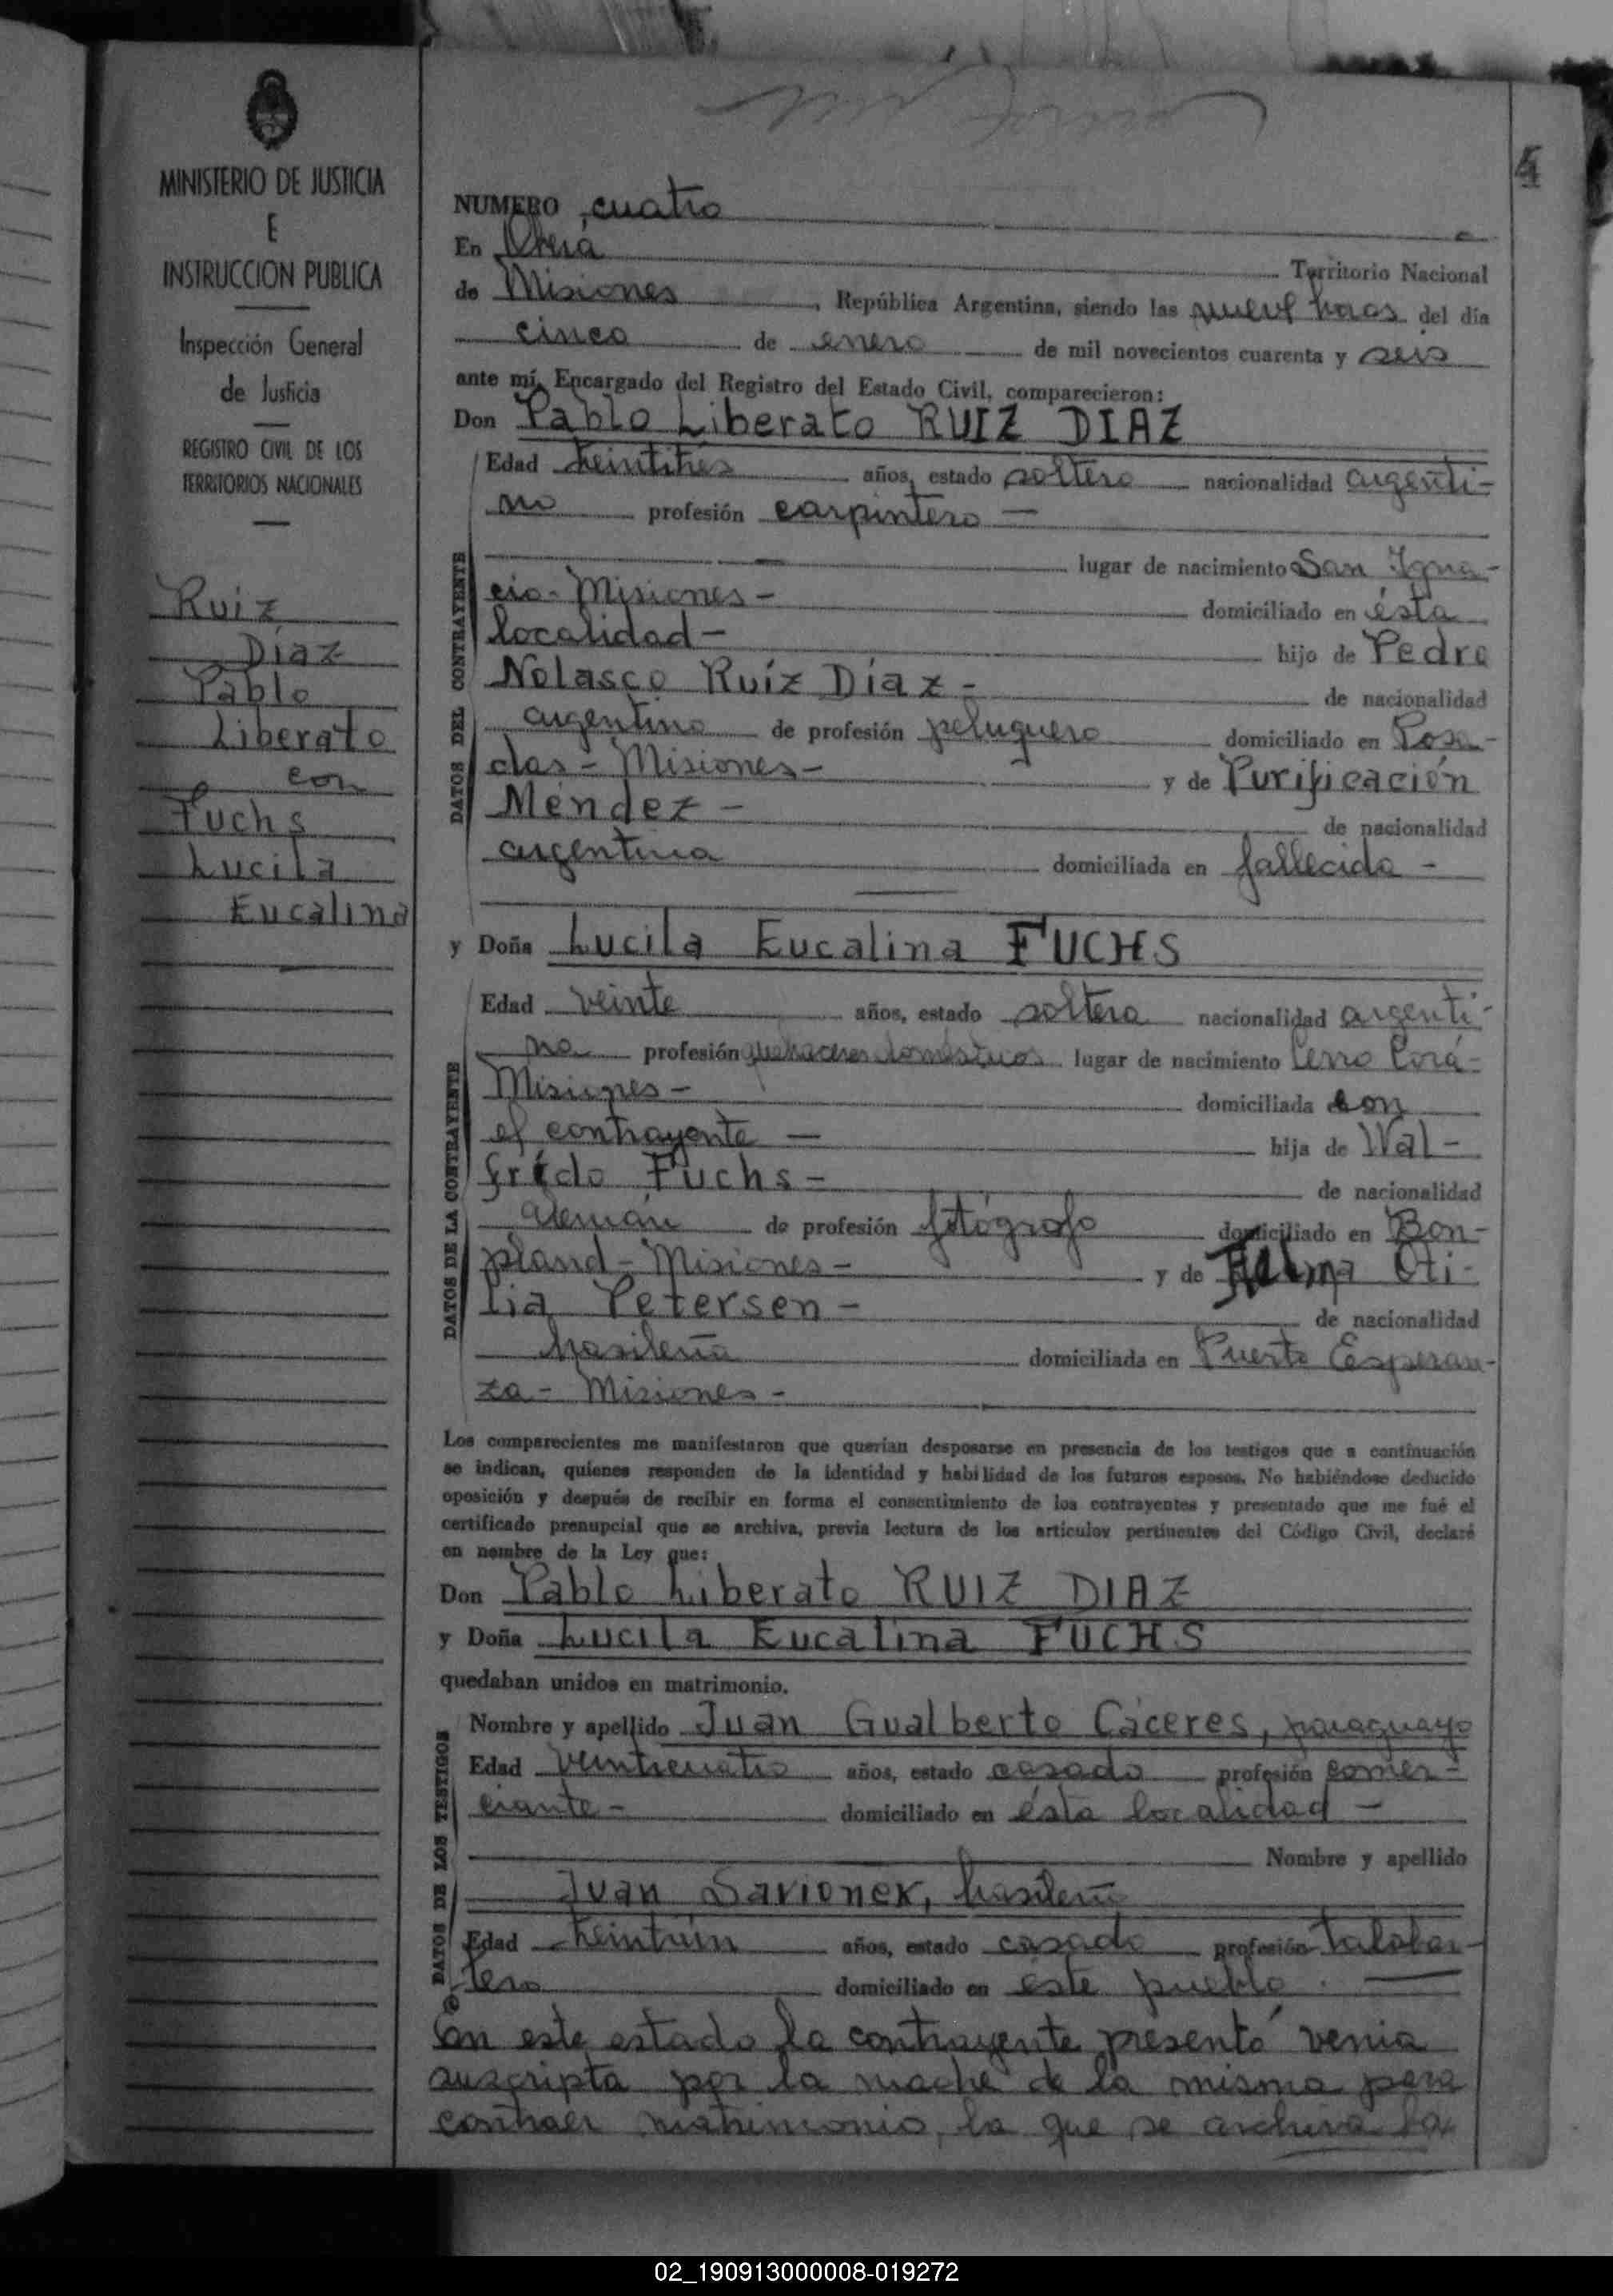 4
MINISTERIO DE JUSTICIA
E
INSTRUCCION PUBLICA
Inspección General
de Justicia
REGISTRO CIVIL DE LOS
TERRITORIOS NACIONALES
Ruiz
Díaz
Pablo
Liberato
con
Fuchs
Lucila
Eucalina
NUMERO cuatro
En Oberá Territorio Nacional
de Misiones, República Argentina, siendo las nueve horas del día
cinco de enero de mil novecientos cuarenta y seis
ante mí, Encargado del Registro del Estado Civil, comparecieron:
Don Pablo Liberato RUIZ DIAZ
DATOS DEL CONTRAYENTE
Edad treintitrés años, estado soltero nacionalidad argenti-
no profesión carpintero —
lugar de nacimiento San Igna-
cio - Misiones - domiciliado en ésta
localidad - hijo de Pedro
Nolasco Ruíz Díaz - de nacionalidad
argentino de profesión peluquero domiciliado en Posa-
das - Misiones - y de Purificación
Méndez - de nacionalidad
argentina domiciliada en fallecida -
y Doña Lucila Eucalina FUCHS
DATOS DE LA CONTRAYENTE
Edad veinte años, estado soltera nacionalidad argenti-
na profesión quehaceres domésticos lugar de nacimiento Cerro Corá -
Misiones - domiciliada con
el contrayente — hija de Wal-
frido Fuchs - de nacionalidad
alemán de profesión fotógrafo domiciliado en Bon-
pland - Misiones - y de Oti-
lia Petersen - de nacionalidad
brasileña domiciliada en Puerto Esperan-
za - Misiones -
Los comparecientes me manifestaron que querían desposarse en presencia de los testigos que a continuación
se indican, quienes responden de la identidad y habilidad de los futuros esposos. No habiéndose deducido
oposición y después de recibir en forma el consentimiento de los contrayentes y presentado que me fué el
certificado prenupcial que se archiva, previa lectura de los artículos pertinentes del Código Civil, declaré
en nombre de la Ley que:
Don Pablo Liberato RUIZ DIAZ
y Doña Lucila Eucalina FUCHS
quedaban unidos en matrimonio.
DATOS DE LOS TESTIGOS
Nombre y apellido Juan Gualberto Cáceres, paraguayo
Edad veinticuatro años, estado casado profesión comer-
ciante - domiciliado en ésta localidad -
Nombre y apellido
Juan Savionek, brasileño
Edad treintiún años, estado casado profesión talabar-
tero domiciliado en éste pueblo.
En este estado la contrayente presentó venia
suscripta por la madre de la misma para
contraer matrimonio, la que se archiva la
02_190913000008-019272